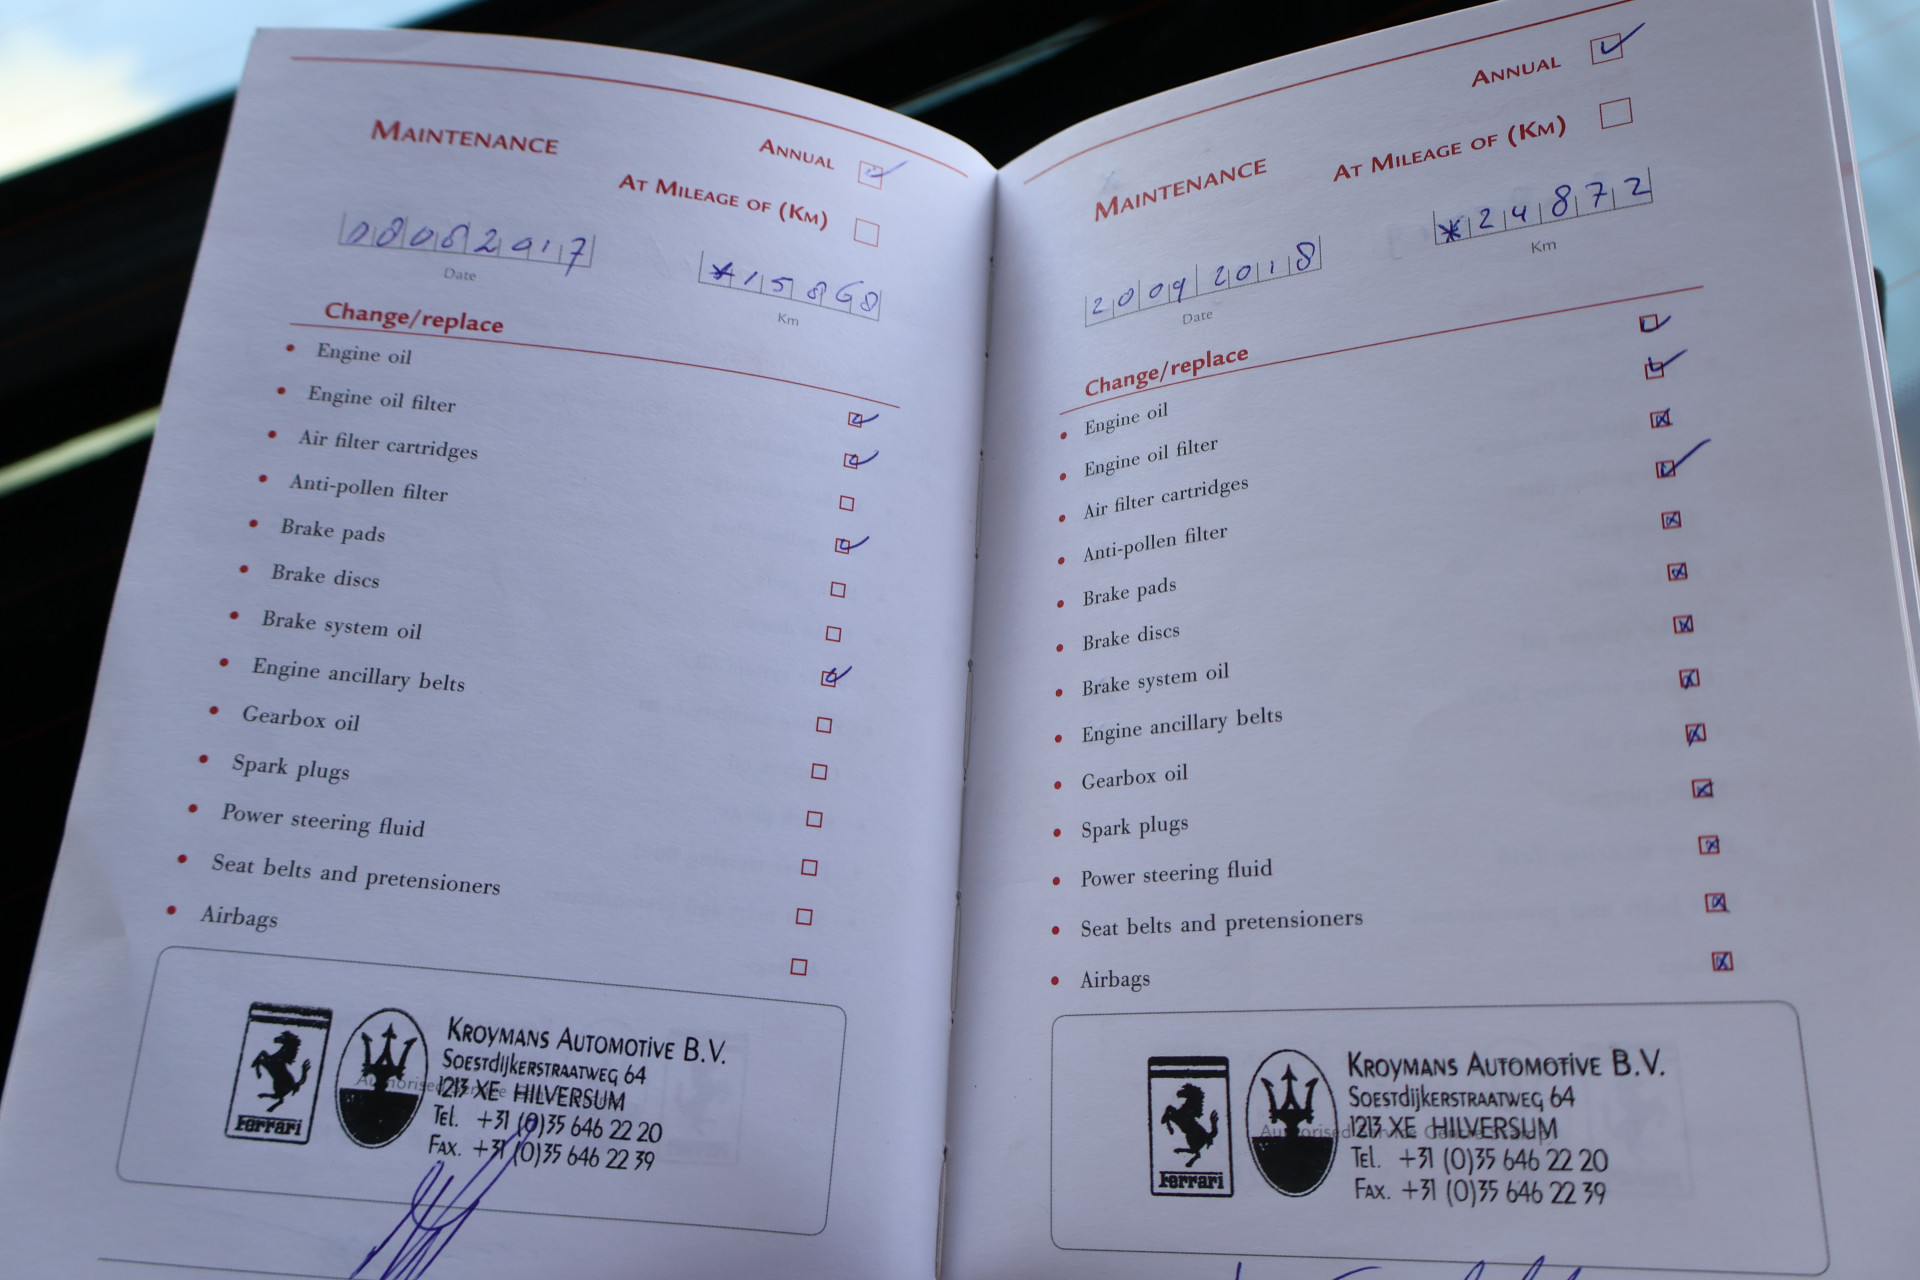 MAINTENANCE
ANNUAL
AT MILEAGE OF (KM)
08082017
Date
*15868
Km
Change/replace
• Engine oil
• Engine oil filter
• Air filter cartridges
• Anti-pollen filter
• Brake pads
• Brake discs
• Brake system oil
• Engine ancillary belts
• Gearbox oil
• Spark plugs
• Power steering fluid
• Seat belts and pretensioners
• Airbags
Ferrari
KROYMANS AUTOMOTIVE B.V.
SOESTDIJKERSTRAATWEG 64
1213 XE HILVERSUM
TEL. +31 (0)35 646 22 20
FAX. +31 (0)35 646 22 39
ANNUAL
AT MILEAGE OF (KM)
MAINTENANCE
20092018
Date
*24872
Km
Change/replace
• Engine oil
• Engine oil filter
• Air filter cartridges
• Anti-pollen filter
• Brake pads
• Brake discs
• Brake system oil
• Engine ancillary belts
• Gearbox oil
• Spark plugs
• Power steering fluid
• Seat belts and pretensioners
• Airbags
Ferrari
KROYMANS AUTOMOTIVE B.V.
SOESTDIJKERSTRAATWEG 64
1213 XE HILVERSUM
TEL. +31 (0)35 646 22 20
FAX. +31 (0)35 646 22 39